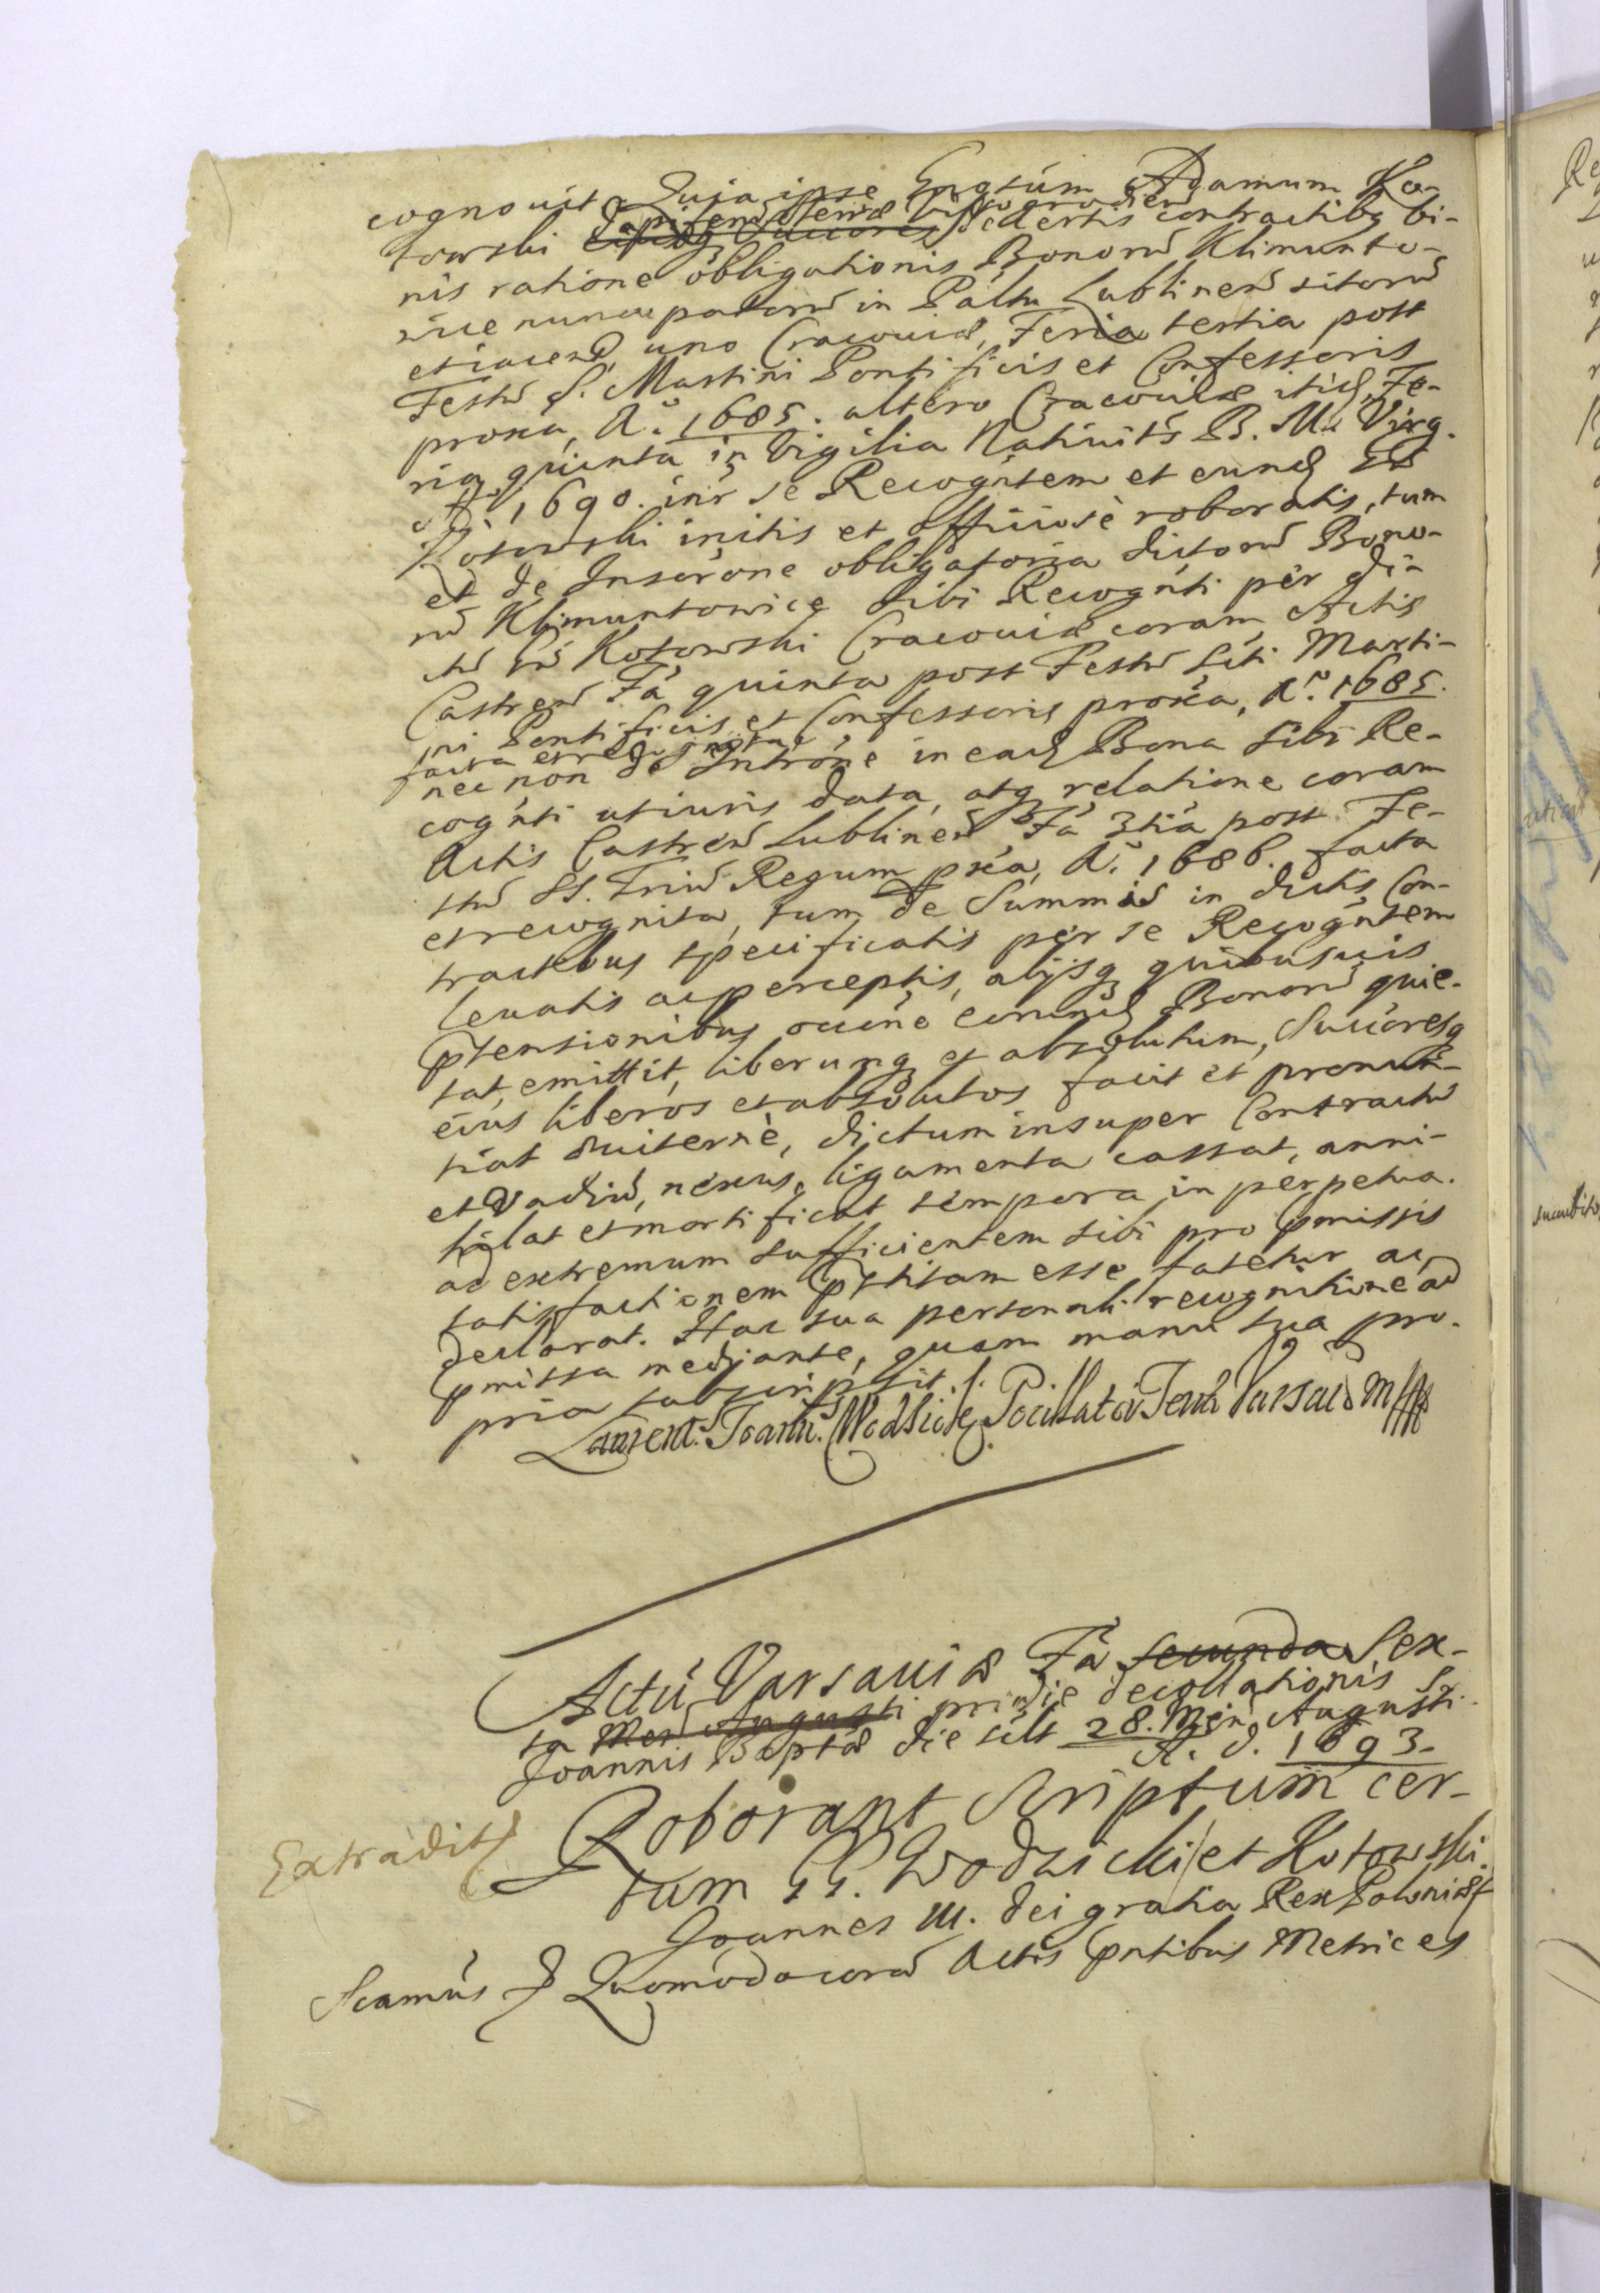 cognovit, Quia ipse Gnosum Adamum Ko-
Dapiferu Terræ Vissogrodien
towski eiusq Succores de certis contractibq bi-
nis ratione obligationis Bonorū Klimunto-
wice nuncupatorū in Pałtu Lublinen sitorū
et iacen, uno Cracoviæ, Feria tertia post
Festū S. Martini Pontificis et Confessoris
proxa, A. 1685. altero Cracoviæ itid, Fe-
ria quinta in Vigilia Nativits B. M. Virg.
A. 1690. inr se Recogntem et eund
Kotowski initis et officiose roboratis, tum
et de Inscrone obligatoria dictorū Bono-
rū Klimuntowice sibi Recognti per di-
ctū Kotowski Cracoviæ coram Actis
Castren Fa quinta post Festū Sti Marti-
ni Pontificis et Confessoris proxa, A. 1685.
facta et recognita
nec non de Introne in ead Bona sibi Re-
cognti uti iuris data, atq relatione coram
Actis Castren Lublinen Fa 3tia post Fe-
stū SS. Triū Regum pxa, A. 1686. facta
et recognita, tum de Summis in dictis Con-
tractibus specificatis per se Recogntem
levatis ac perceptis, alijsq quibusvis
ptensionibus occne eorund Bonorū quie-
tat, emittit, liberumq et absolutum, Succoresq
eius liberos et absolutos facit et pronun-
tiat suiterne, dictum insuper Contractū
et Vadiū, nexus, ligamenta cassat, anni-
hilat et mortificat tempora in perpetua.
ad extremum sufficientem sibi pro pmissis
satisfactionem pstitam esse fatetur ac
declarat. Hac sua personali recognitione ad
pmissa mediante, quam manu sua pro-
pria subscripsit.
Laurent: Joann: Wodzicki Pocillator Terræ Varsav m
Actū Varsaviæ Fa secunda Sex-
ta Men Augusti pridie decollationis S.
Joannis Baptæ die scilt 28. Men Augusti
A. D. 1693.
Extradit
Roborant Scriptum cer-
tum GG. Wodzicki et Kotowski.
Joannes III. Dei gratia Rex Poloniæ
Scamus Quomodo corā Actis pntibus Metrices